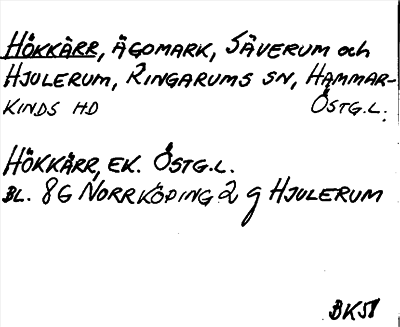 HÖKKÄRR, ÄGOMARK, SÄVERUM och
HJULERUM, RINGARUMS SN, HAMMAR-
KINDS HD ÖSTG.L.
HÖKKÄRR, EK. ÖSTG.L.
BL. 8G NORRKÖPING 2 g HJULERUM
BK51